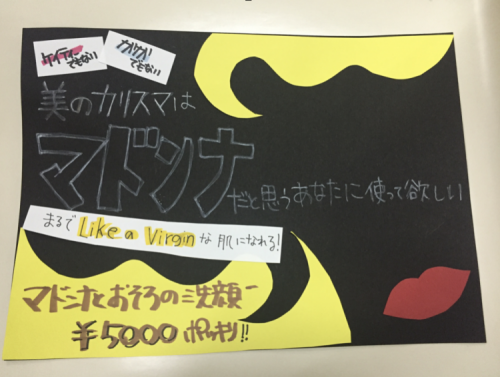 ケイティーでもない
カリカリでもない
美のカリスマは
マドンナ
だと思うあなたに使って欲しい
まるで Like a Virgin な肌になれる!
マドンナとおそろの洗顔
¥5000 ポッキリ!!